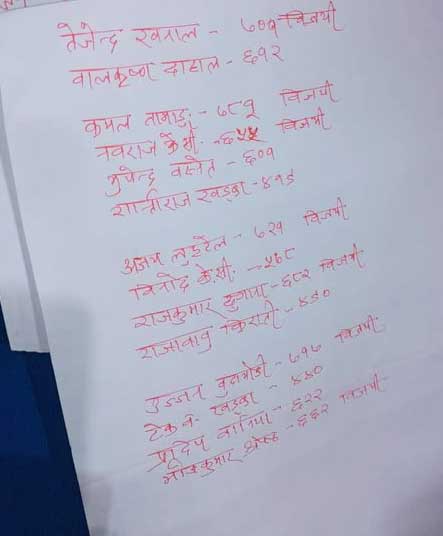 तेजेन्द्र खनाल - ७०७ विजयी
बालकृष्ण दाहाल - ६१२
कमल तामाङ - ७८५ विजयी
नवराज के.सी. - ६५५ विजयी
भुपेन्द्र वस्नेत - ६०१
शान्तीराज खड्का - ४१८
अजय लुइटेल - ७२१ विजयी
विनोद के.सी. - ५७८
राजकुमार ढुंगाना - ६८२ विजयी
राजाबाबु किराती - ४८०
उज्जन बुढाथोकी - ७१७ विजयी
टेक ब. खड्का - ४४०
प्रदिप वानिया - ६२२
भोजकुमार श्रेष्ठ - ६६२ विजयी